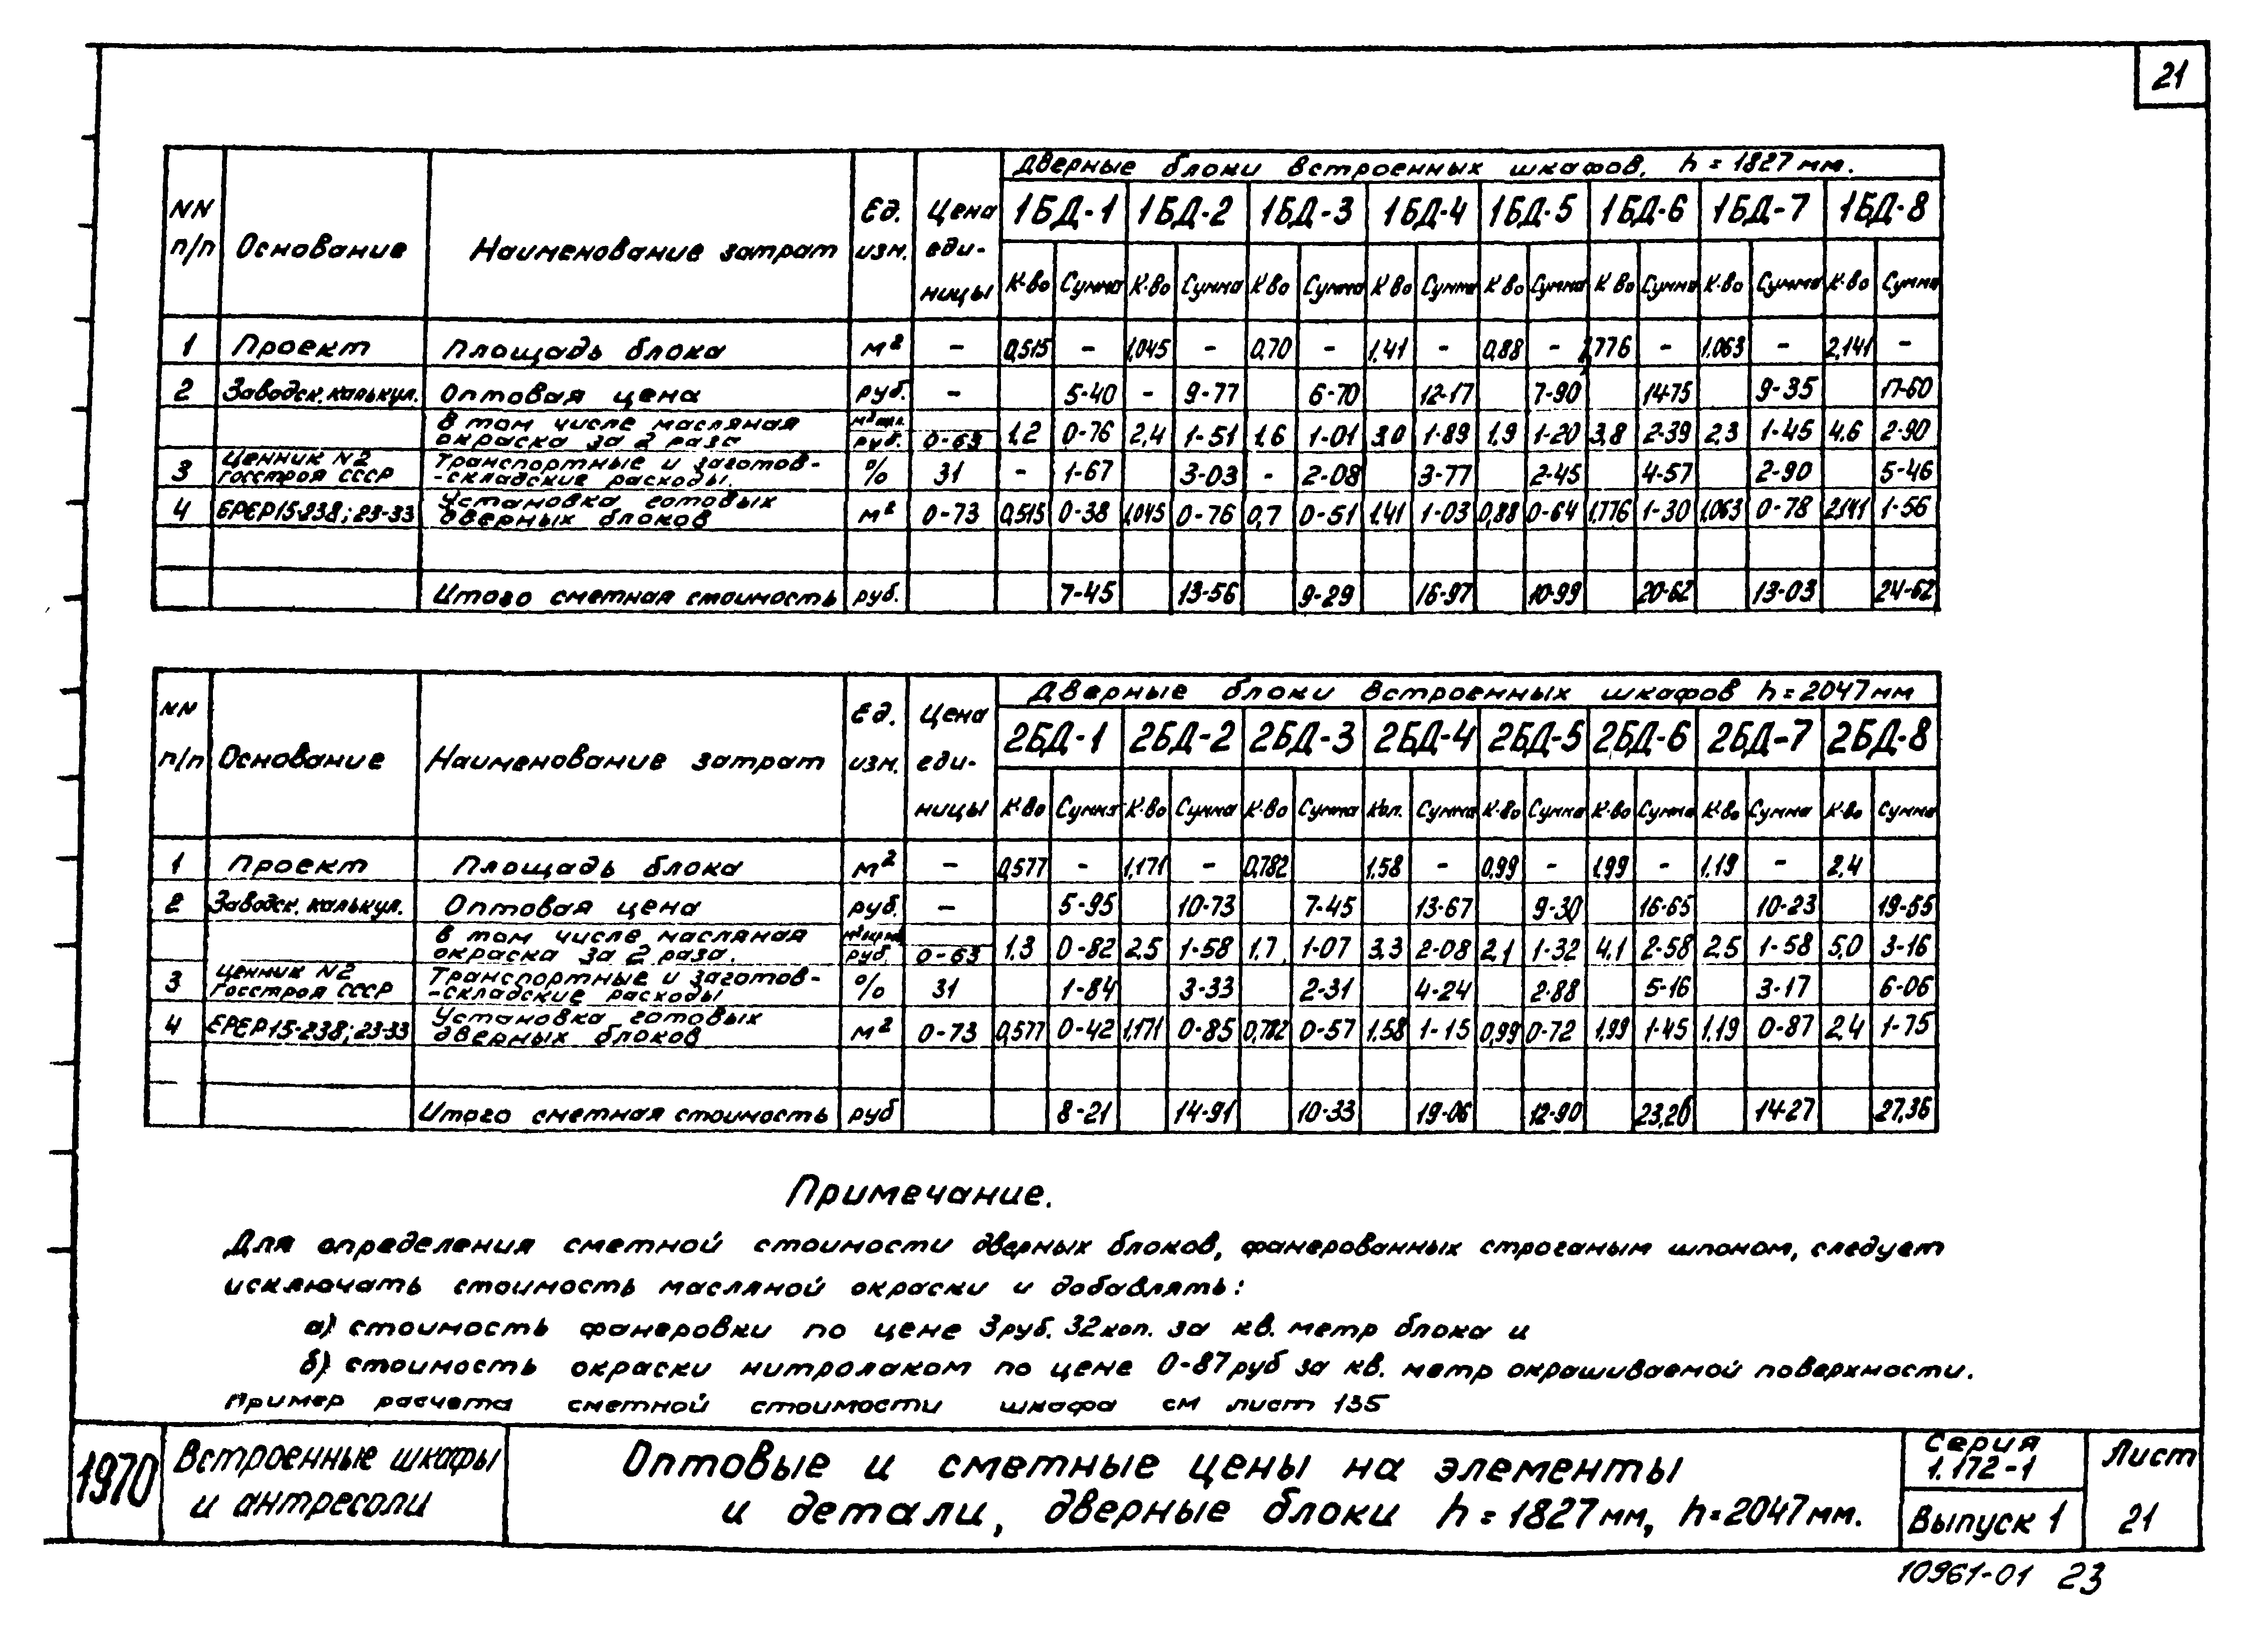 21
Дверные блоки встроенных шкафов, h = 1827 мм.
NN п/п Основание Наименование затрат Ед. изм. Цена еди- ницы 1БД-1 1БД-2 1БД-3 1БД-4 1БД-5 1БД-6 1БД-7 1БД-8
К-во Сумма К-во Сумма К-во Сумма К-во Сумма К-во Сумма К-во Сумма К-во Сумма К-во Сумма
1 Проект Площадь блока м² - 0,515 - 1,045 - 0,70 - 1,41 - 0,88 - 1,776 - 1,063 - 2,141 -
2 Заводск. калькул. Оптовая цена руб. - 5-40 - 9-77 6-70 12-17 7-90 14-75 9-35 17-60
в том числе масляная
окраска за 2 раза руб. 0-63 1,2 0-76 2,4 1-51 1,6 1-01 3,0 1-89 1,9 1-20 3,8 2-39 2,3 1-45 4,6 2-90
3 Ценник N2 Госстроя СССР Транспортные и заготов-
-складские расходы. % 31 - 1-67 3-03 - 2-08 3-77 2-45 4-57 2-90 5-46
4 ЕРЕР15-238; 23-33 Установка готовых
дверных блоков м² 0-73 0,515 0-38 1,045 0-76 0,7 0-51 1,41 1-03 0,88 0-64 1,776 1-30 1,063 0-78 2,141 1-56
Итого сметная стоимость руб. 7-45 13-56 9-29 16-97 10-99 20-62 13-03 24-62
Дверные блоки встроенных шкафов h = 2047 мм
NN п/п Основание Наименование затрат Ед. изм. Цена еди- ницы 2БД-1 2БД-2 2БД-3 2БД-4 2БД-5 2БД-6 2БД-7 2БД-8
К-во Сумма К-во Сумма К-во Сумма Кол. Сумма К-во Сумма К-во Сумма К-во Сумма К-во Сумма
1 Проект Площадь блока м² - 0,577 - 1,171 - 0,782 1,58 - 0,99 - 1,99 - 1,19 - 2,4
2 Заводск. калькул. Оптовая цена руб. - 5-95 10-73 7-45 13-67 9-30 16-65 10-23 19-55
в том числе масляная
окраска за 2 раза. руб. 0-63 1,3 0-82 2,5 1-58 1,7 1-07 3,3 2-08 2,1 1-32 4,1 2-58 2,5 1-58 5,0 3-16
3 Ценник N2 Госстроя СССР Транспортные и заготов-
-складские расходы % 31 1-84 3-33 2-31 4-24 2-88 5-16 3-17 6-06
4 ЕРЕР15-238; 23-33 Установка готовых
дверных блоков м² 0-73 0,577 0-42 1,171 0-85 0,782 0-57 1,58 1-15 0,99 0-72 1,99 1-45 1,19 0-87 2,4 1-75
Итого сметная стоимость руб 8-21 14-91 10-33 19-06 12-90 23,26 14-27 27,36
Примечание.
Для определения сметной стоимости дверных блоков, фанерованных строганым шпоном, следует
исключать стоимость масляной окраски и добавлять:
а) стоимость фанеровки по цене 3руб. 32 коп. за кв. метр блока и
б) стоимость окраски нитролаком по цене 0-87 руб за кв. метр окрашиваемой поверхности.
Пример расчета сметной стоимости шкафа см лист 135
1970 Встроенные шкафы
и антресоли
Оптовые и сметные цены на элементы
и детали, дверные блоки h = 1827 мм, h = 2047 мм.
Серия
1.172-1
Выпуск 1
Лист
21
10961-01 23